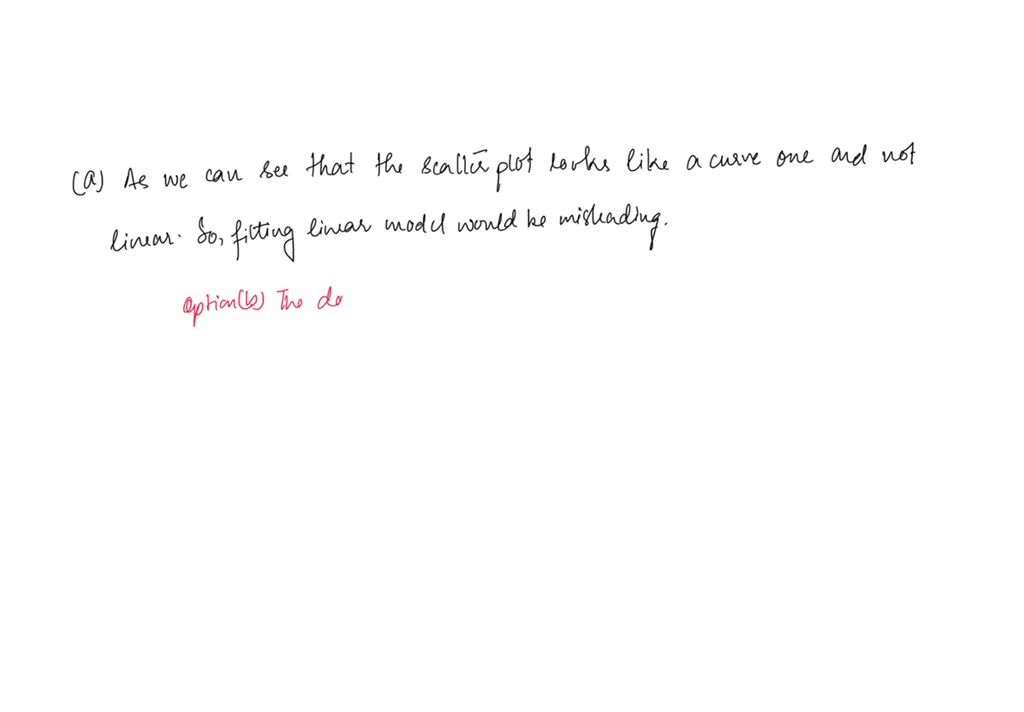 (a) As we can see that the scatter plot looks like a curve one and not
linear. So, fitting linear model would be misleading.
Option(b) The da